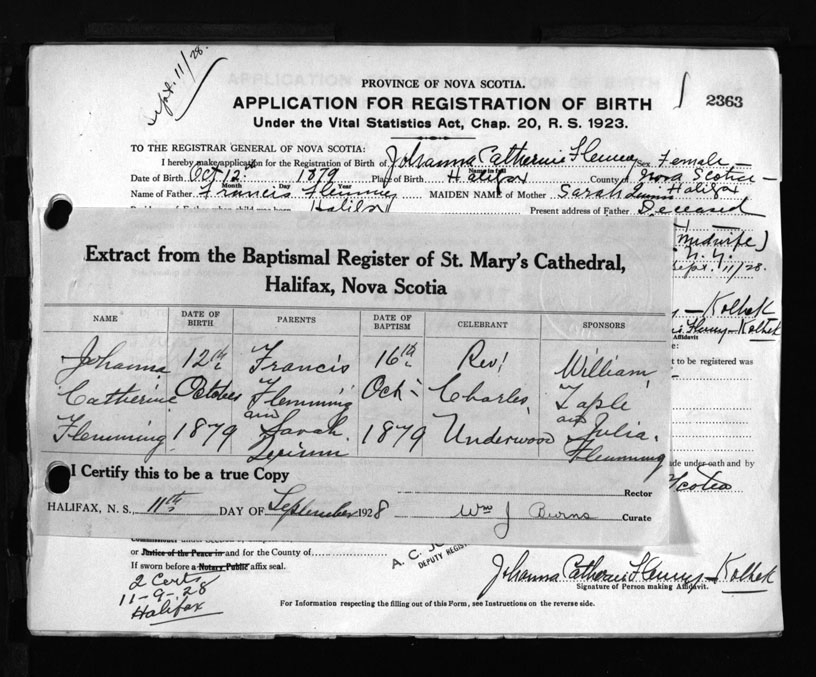 Sept. 11/28.
PROVINCE OF NOVA SCOTIA.
APPLICATION FOR REGISTRATION OF BIRTH
2363
Under the Vital Statistics Act, Chap. 20, R. S. 1923.
TO THE REGISTRAR GENERAL OF NOVA SCOTIA:
I hereby make application for the Registration of Birth of Johanna Catherine Flemming Sex Female
Name in full
Date of Birth Oct 12th 1879 Place of Birth Halifax County of Nova Scotia
Month Day Year
Halifax
Name of Father Francis Flemming MAIDEN NAME of Mother Sarah
Halifax Present address of Father Deceased
Midwife)
N.Y.
Sept. 11/28.
Extract from the Baptismal Register of St. Mary's Cathedral,
Halifax, Nova Scotia
NAME DATE OF BIRTH PARENTS DATE OF BAPTISM CELEBRANT SPONSORS
Johanna 12th Francis 16th Rev. William
Catherine October Flemming Oct Charles
and and
Flemming 1879 Sarah 1879 Underwood Julia
Flemming
Kolbek
Kolbek
Affidavit
t to be registered was
ade under oath and by
Scotia
I Certify this to be a true Copy
Rector
HALIFAX, N. S., 11th DAY OF September 1928 Wm J Burns Curate
or Justice of the Peace in and for the County of
A. C.
DEPUTY REGIS
If sworn before a Notary Public affix seal.
2 Certs
11-9-28
Halifax
Johanna Catherine Flemming-Kolbek
Signature of Person making Affidavit.
For Information respecting the filling out of this Form, see Instructions on the reverse side.